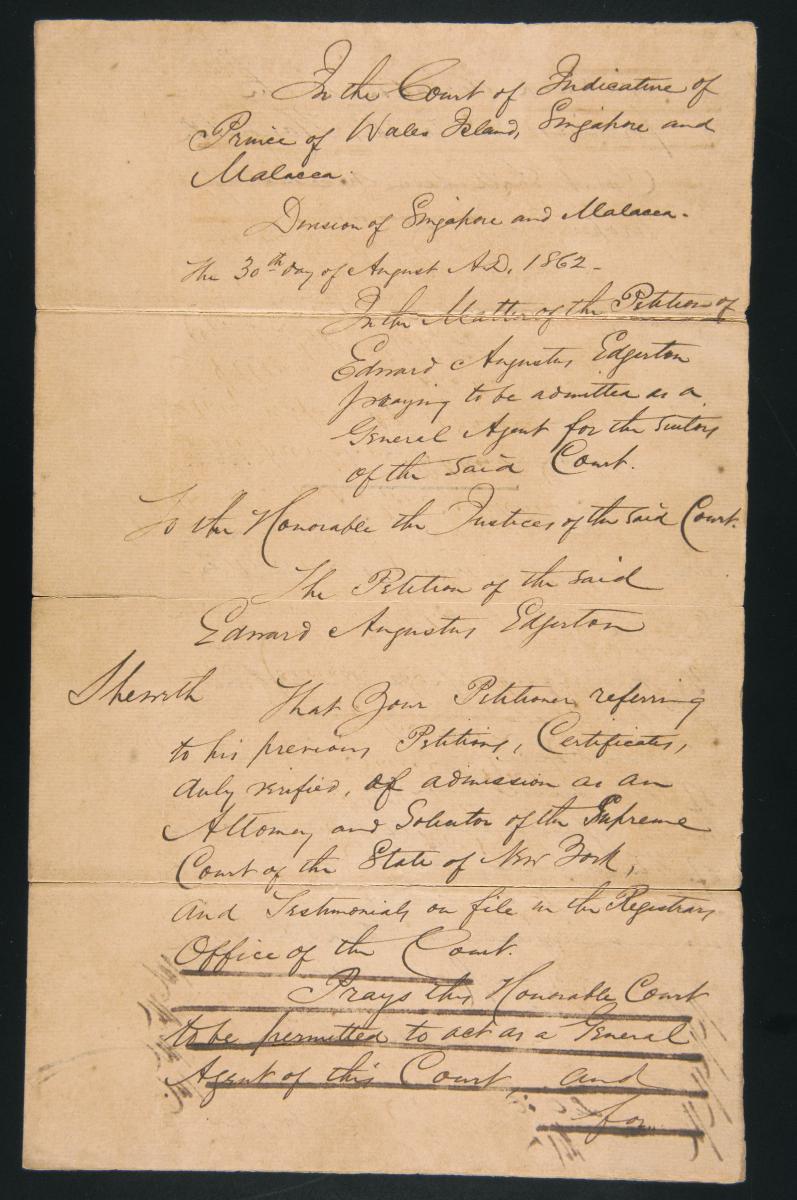 In the Court of Judicature of
Prince of Wales Island, Singapore and
Malacca.
Division of Singapore and Malacca.
The 30th day of August A.D. 1862 -
In the Matter of the Petition of
Edward Augustus Edgerton
praying to be admitted as a
General Agent for the suitors
of the said Court.
To the Honorable the Justices of the said Court.
The Petition of the said
Edward Augustus Edgerton
Sheweth That Your Petitioner referring
to his previous Petitions, Certificates,
duly verified, of admission as an
Attorney and Solicitor of the Supreme
Court of the State of New York,
and Testimonials on file in the Registrars
Office of the Court.
Prays this Honorable Court
to be permitted to act as a General
Agent of this Court, and
for